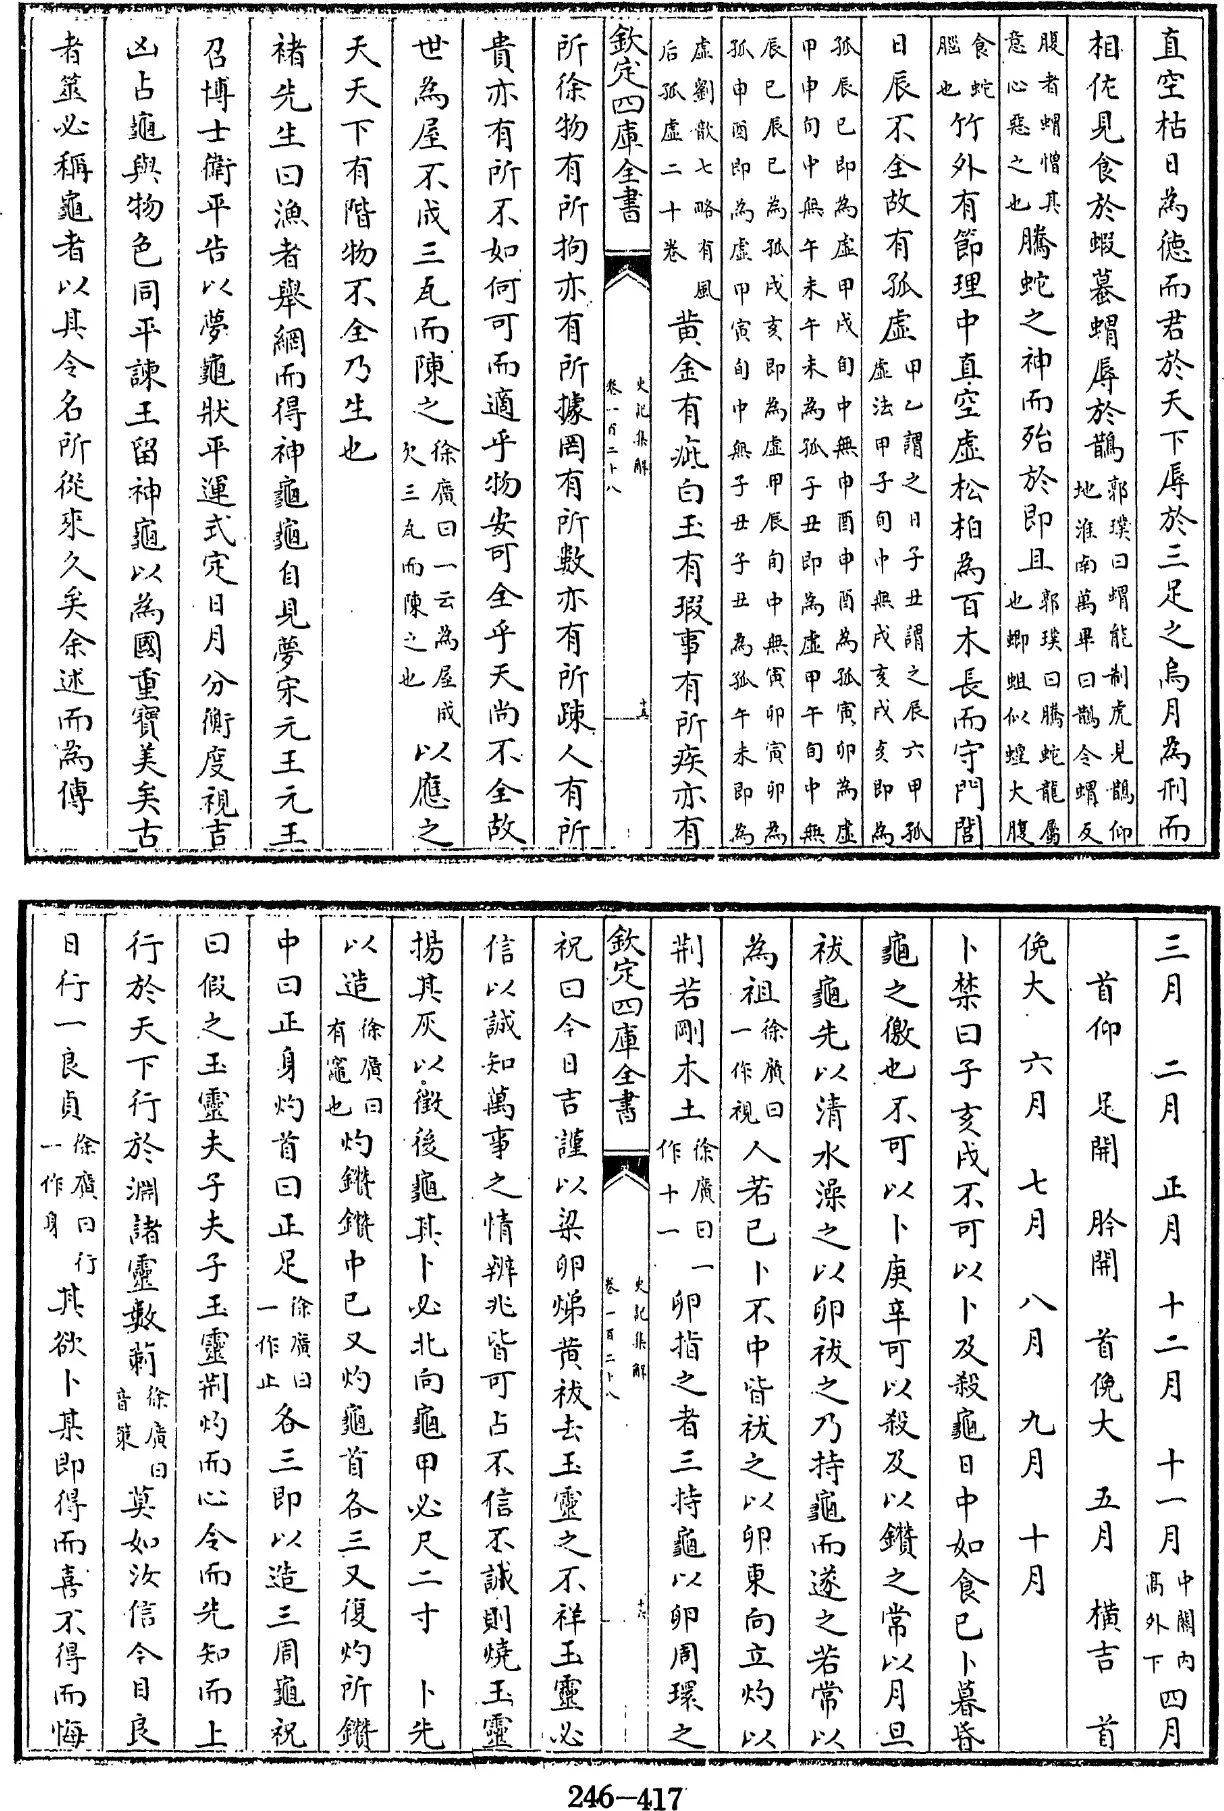 直空枯日為徳而君於天下辱於三足之烏月為刑而
相佐見食於蝦蟇蝟辱於鵲郭璞曰蝟能制虎見鵲仰地淮南萬畢曰鵲令蝟反
腹者蝟憎其意心惡之也騰蛇之神而殆於即且郭璞曰騰蛇龍屬也蝍蛆似蝗大腹
食蛇腦也竹外有節理中直空虛松柏為百木長而守門閭
日辰不全故有孤虛甲乙謂之日子丑謂之辰六甲孤虛法甲子旬中無戌亥戌亥即為
孤辰巳即為虛甲戌旬中無申酉申酉為孤寅卯為虛甲申旬中無午未午未為孤子丑即為虛甲午旬中無
辰巳辰巳為孤戌亥即為虛甲辰旬中無寅卯寅卯為孤申酉即為虛甲寅旬中無子丑子丑為孤午未即為
虛劉歆七略有風后孤虛二十卷黄金有疵白玉有瑕事有所疾亦有
欽定四庫全書
史記集解
卷一百二十八
十五
所徐物有所拘亦有所據罔有所數亦有所踈人有所
貴亦有所不如何可而適乎物安可全乎天尚不全故
世為屋不成三瓦而陳之徐廣曰一云為屋成欠三瓦而陳之也以應之
天天下有階物不全乃生也
褚先生曰漁者舉網而得神龜龜自見夢宋元王元王
召博士衛平告以夢龜狀平運式定日月分衡度視吉
凶占龜與物色同平諫王留神龜以為國重寶美矣古
者筮必稱龜者以其令名所從來久矣余述而為傳
三月 二月 正月 十二月 十一月中關内高外下 四月
首仰 足開 肣開 首俛大 五月 橫吉 首
俛大 六月 七月 八月 九月 十月
卜禁曰子亥戌不可以卜及殺龜日中如食已卜暮昏
龜之徼也不可以卜庚辛可以殺及以鑽之常以月旦
祓龜先以清水澡之以卵祓之乃持龜而遂之若常以
為祖徐廣曰一作視人若已卜不中皆祓之以卵東向立灼以
荆若剛木土徐廣曰一作十一卵指之者三持龜以卵周環之
欽定四庫全書
史記集解
卷一百二十八
十六
祝曰今日吉謹以梁卵焍黄祓去玉靈之不祥玉靈必
信以誠知萬事之情辨兆皆可占不信不誠則燒玉靈
揚其灰以徵後龜其卜必北向龜甲必尺二寸 卜先
以造徐廣曰有竈也灼鑽鑽中已又灼龜首各三又復灼所鑽
中曰正身灼首曰正足徐廣曰一作止各三即以造三周龜祝
曰假之玉靈夫子夫子玉靈荆灼而心令而先知而上
行於天下行於淵諸靈數䇲徐廣曰音策莫如汝信今日良
日行一良貞徐廣曰行一作身其欲卜某即得而喜不得而悔
246—417